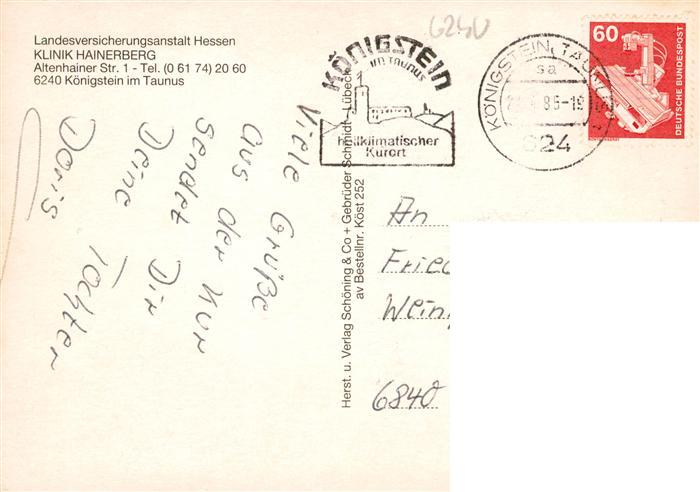 Landesversicherungsanstalt Hessen
KLINIK HAINERBERG
Altenhainer Str. 1 - Tel. (0 61 74) 20 60
6240 Königstein im Taunus
6240
KÖNIGSTEIN
IM TAUNUS
Heilklimatischer
Kurort
KÖNIGSTEIN, TAUNUS
sa
85-19
624
60
DEUTSCHE BUNDESPOST
Viele Grüße
aus der Kur
sendet Dir
Deine Tochter
Doris
Herst. u. Verlag Schöning & Co + Gebrüder Schmidt, Lübeck
av Bestellnr. Köst 252
An
Fried
Wein
6840